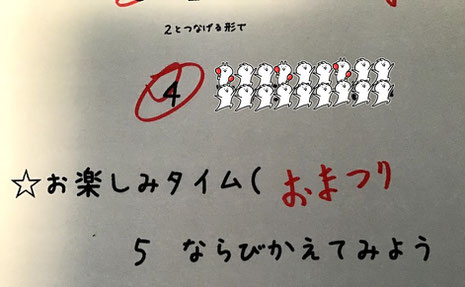 2とつなげる形で
4
☆お楽しみタイム( おまつり
5 ならびかえてみよう